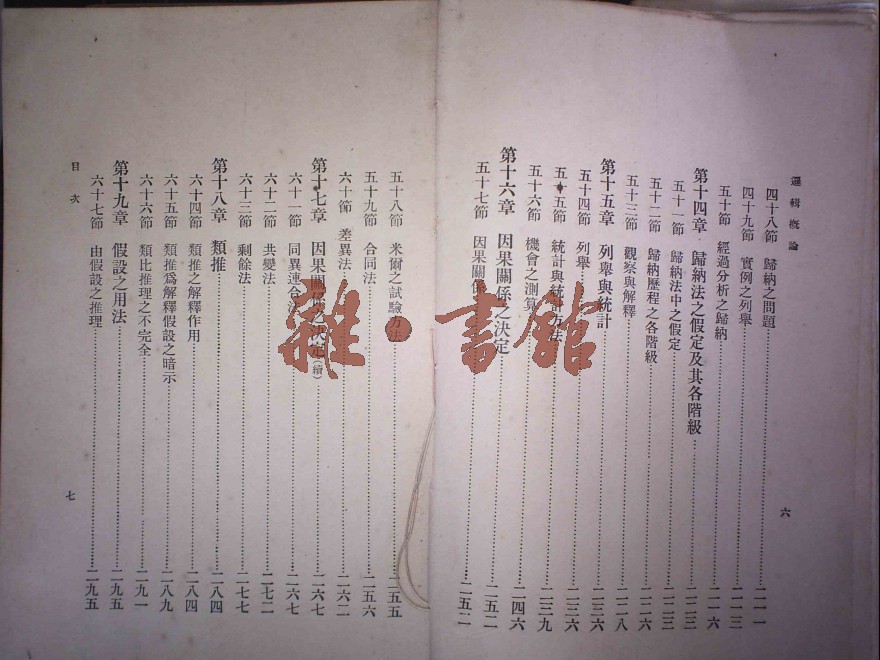 邏輯概論
四十八節 歸納之問題……二一一
四十九節 實例之列舉……二一三
五十節 經過分析之歸納……二一六
第十四章 歸納法之假定及其各階級……二二三
五十一節 歸納法中之假定……二二三
五十二節 歸納歷程之各階級……二二六
五十三節 觀察與解釋……二二八
第十五章 列舉與統計……二三六
五十四節 列舉……二三六
五十五節 統計與統計方法……二三九
五十六節 機會之測算……二四六
第十六章 因果關係之決定……二五二
五十七節 因果關係……二五二
六
五十八節 米爾之試驗方法……二五五
五十九節 合同法……二五六
六十節 差異法……二六二
第十七章 因果關係之決定(續)……二六七
六十一節 同異連合法……二六七
六十二節 共變法……二七二
六十三節 剩餘法……二七七
第十八章 類推……二八四
六十四節 類推之解釋作用……二八四
六十五節 類推爲解釋假設之暗示……二八九
六十六節 類比推理之不完全……二九一
第十九章 假設之用法……二九五
六十七節 由假設之推理……二九五
目次
七
雜·書館